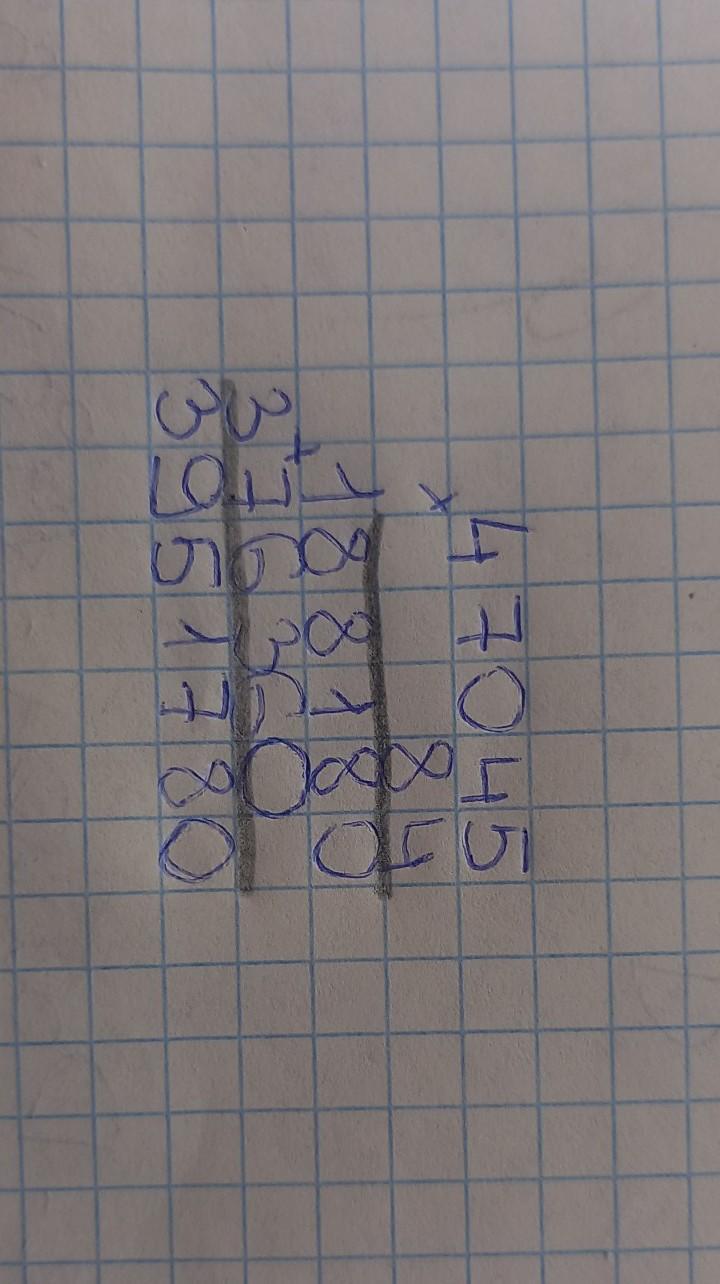 × 47045
84
188180
+ 376360
3951780